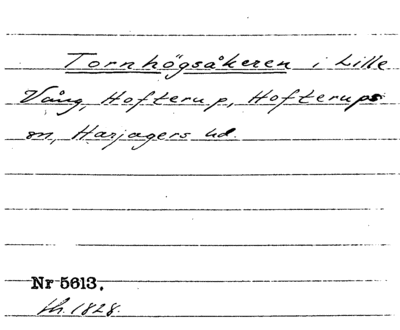 Tornhögsåkeren i Lille
Vång, Hofterup, Hofterups
sn, Harjagers hd.
Nr 5613.
Lh. 1828.